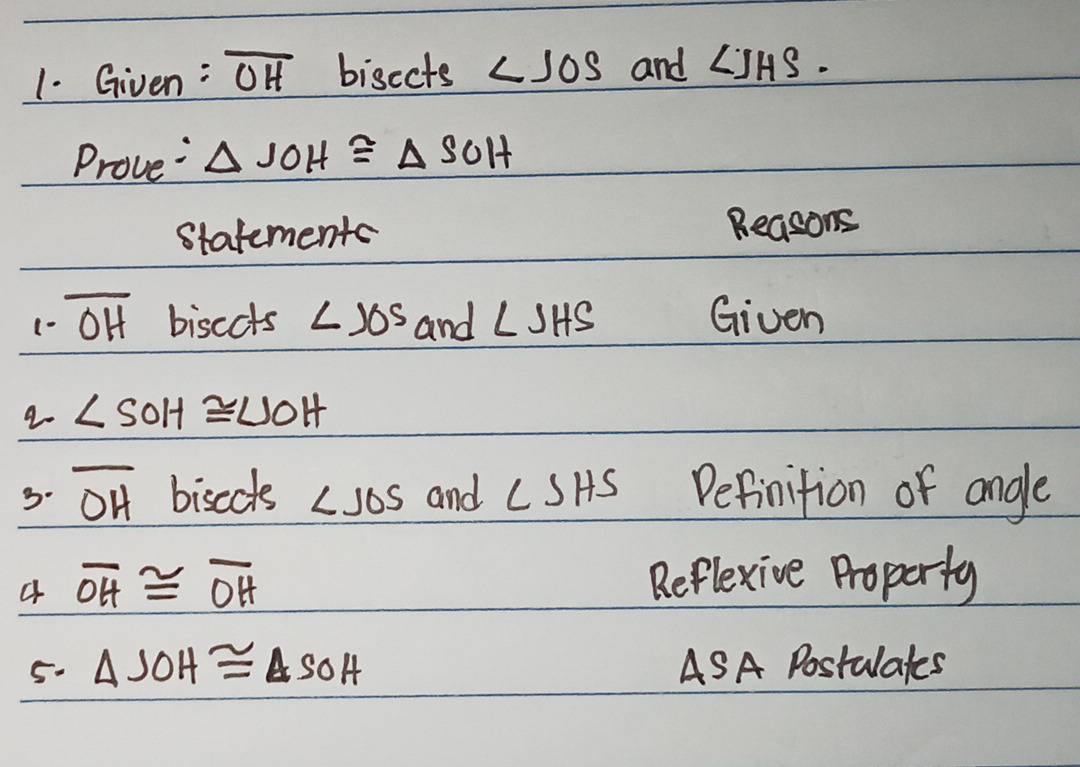 1. Given: OH bisects ∠JOS and ∠JHS.
Prove: Δ JOH ≅ Δ SOH
Statements Reasons
1- OH bisects ∠JOS and ∠JHS Given
2- ∠SOH ≅ ∠JOH
3- OH bisects ∠JOS and ∠JHS Definition of angle
4 OH ≅ OH Reflexive Property
5- Δ JOH ≅ Δ SOH ASA Postulates